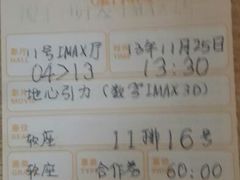 影厅 HALL 11号IMAX厅 时间 13年11月25日
04>13 13:30
影片 MOVIE 地心引力（数字IMAX 3D）
座位 SEAT 软座 11排16号
软座 票类 TYPE 合作券 票价 60:00